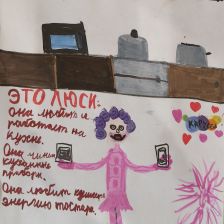 ЭТО ЛЮСИ:
Она любит и
работает на
кухне.
Она чинит
кухонные
приборы.
Она любит кушать
энергию тостера.